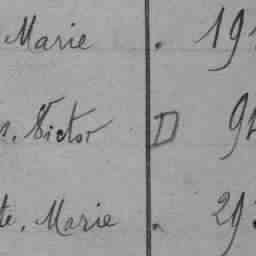 Marie . 191
. Victor D 94
te. Marie . 293